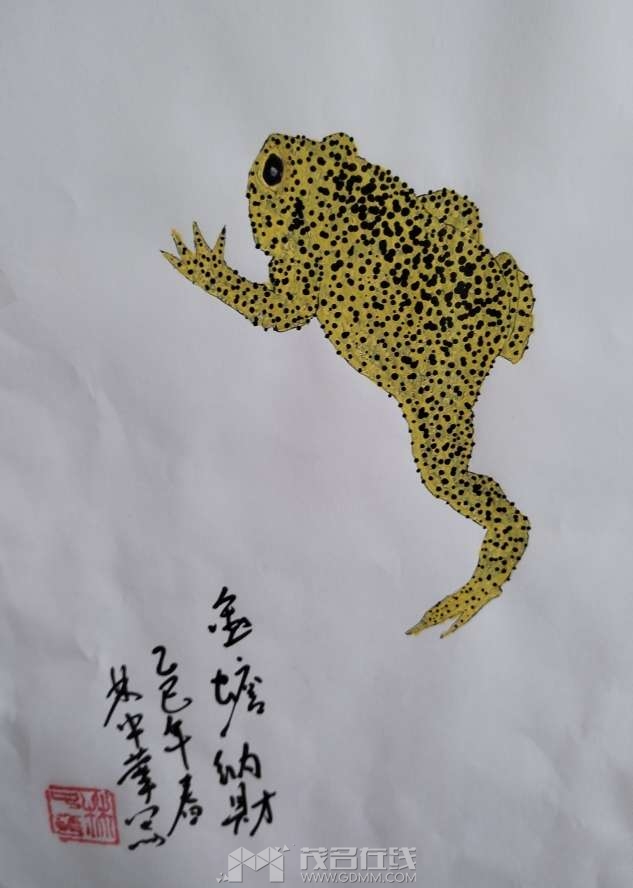 金蟾纳财
乙巳年春
林中华写
茂名在线
WWW.GDMM.COM